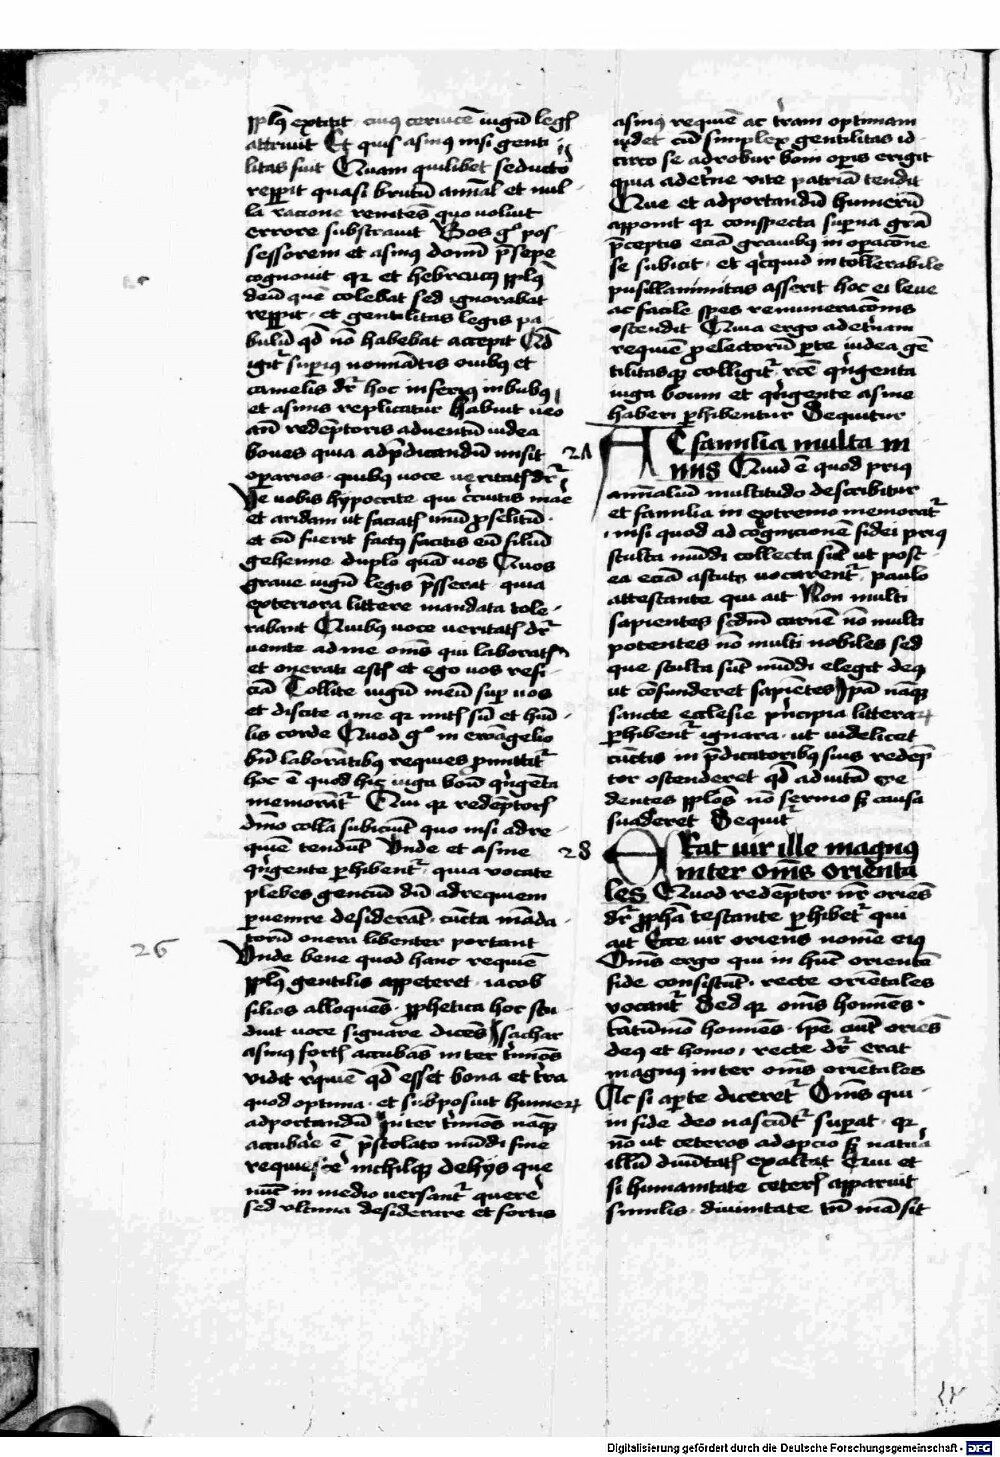 ppl's extitit · cuius ceruicē iugū legis
attriuit Et quis asinus nisi genti
litas fuit Quam quilibet seductor
reppit quasi brutū annal et nul
la racione renitēs quo uoluit
errore substrauit Bos gͦ pos
sessorem et asinus domī p̄sepe
cognouit qr et hebreus pplus
deū quē colebat sed ignorabat
reppit · et gentilitas legis pa
bulū qd nō habebat accepit Qd
igit superius nominatis ouibus et
camelis dr hoc inferius in bubus
et asinis replicatur Habuit uero
an redēptoris aduentū iudea
boues quia ad p̄dicandū misit
oparios · quibus uoce ueritatis dr
Ve uobis hypocrite qui circuitis mare
et aridam ut faciatis unū proselitū ·
et cū fuerit factus facitis eū filiū
gehenne duplo quā uos Quos
graue iugū legis p̄sserat · quia
exteriora littere mandata tole
rabant Quibus uoce ueritatis dr
uenite ad me oms qui laboratis
et onerati estis et ego uos refi
ciā Tollite iugū meū sup uos
et discite a me qr mitis sū et hū
lis corde Quod gͦ in ewāgelio
bn̄ laborātibus requies promittitr
hoc ē quod hic iuga boū qngēta
memorātr Qui qr redēptoris
dn̄io colla subiciūt quo nisi ad re
quiē tendūt Unde et asine
qngente phibentr · quia uocate
plebes genciū dū ad requiem
puenire desiderāt · cūcta māda
torū onera libenter portant
26
Unde bene quod hanc requiē
ppl's gentilis appeteret · iacob
filios alloquēs · pphetica hoc stu
duit uoce signare dicēs Isachar
asinus fortis accubās inter tminos
vidit requiē qd esset bona et trā
quod optima · et subposuit humerū
ad portandū Inter tminos naq
accubare ē p̄stolato mūdi fine
requiescere nichilq de hijs que
nūc in medio uersantr querere
sed ultima desiderare et fortis
asinus requiē ac trām optimam
uidet cū simplex gentilitas id
circo se ad robur boni opis erigit
qua ad eterne vite patriā tendit
Que et ad portandū humerū
apponit qr conspecta supna grā
p̄ceptis eciā grauibus in operacōne
se subicit · et qcquid intollerabile
pusillanimitas asserit hoc ei leue
ac facile spes remuneracōnis
ostendit Quia ergo ad eternam
requiē pro electorū pte iudea gē
tilitasq colligitr · recte qngenta
iuga boum et qngente asine
haberi phibentur Sequitur
27 AC familia multa ni
mis Quid ē quod prius
annaliū multitudo describitur
et familia in extremo memoratr
· nisi quod ad cognicionē fidei prius
stulta mūdi collecta sūt ut post
ea eciā astuta uocarentr · paulo
attestante qui ait Non multi
sapientes scdm carnē nō multi
potentes nō multi nobiles sed
que stulta sūt mūdi elegit deus
ut cōfunderet sapiētes Ipā naq
sancte ecclesie pncipia litterarū
phibentr ignara · ut uidelicet
cūctis in p̄dicatoribus suis redēp
tor ostenderet qd ad uitā cre
dentes pplos nō sermo s; causa
suaderet Sequitr
28 ERat uir ille magnus
inter oms orienta
les Quod redēptor nr oriēs
dr pphā testante phibetr qui
ait Ecce uir oriens nomē eius
Oms ergo qui in hūc orientē
fide consistūt · recte oriētales
vocantr Sed qr oms homīes ·
tātūmō homīes · ipē aūt oriēs
deus et homo · recte dr erat
magnus inter oms oriētales
Ac si apte diceretr Oms qui
in fide deo nascūtr supat · qr
nō ut ceteros adopcio s; natura
illū diuītatis exaltat Qui et
si humanitate ceteris apparuit
similis · diuinitate tn̄ māsit
Digitalisierung gefördert durch die Deutsche Forschungsgemeinschaft · DFG